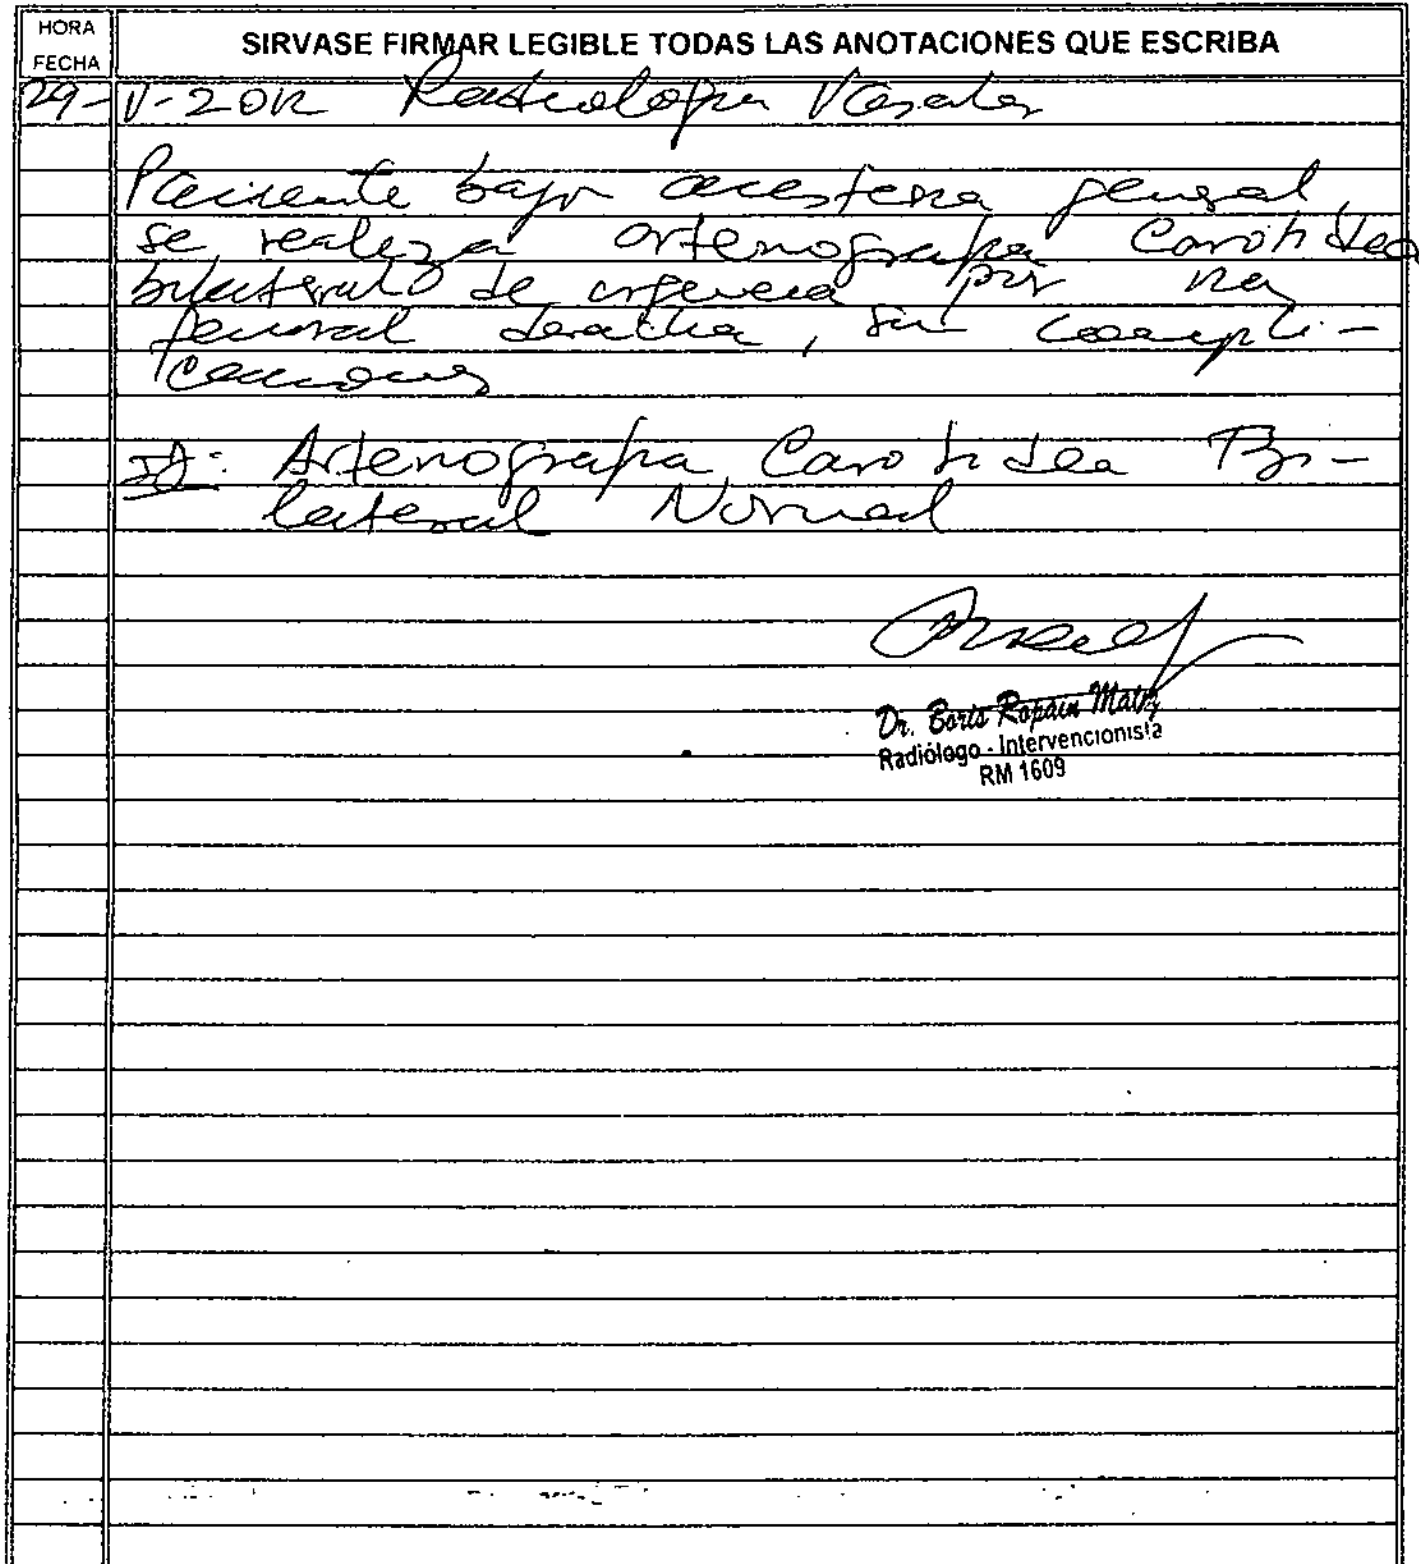 HORA
FECHA
SIRVASE FIRMAR LEGIBLE TODAS LAS ANOTACIONES QUE ESCRIBA
29-V-2012 Radiología Vascular
Paciente bajo anestesia general,
se realiza arteriografia Carotidea
bilateral de urgencia por via
femoral derecha, sin compli-
caciones
ID: Arteriografia Carotidea Bi-
lateral Normal
Dr. Boris Ropain
Radiólogo - Intervencionista
RM 1609